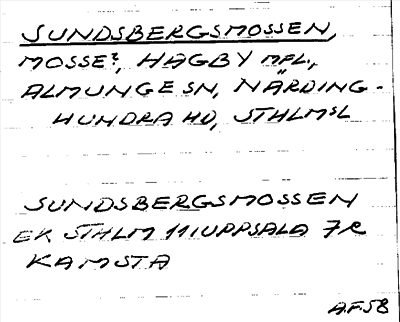 SUNDSBERGSMOSSEN,
MOSSE?, HAGBY MFL.,
ALMUNGE SN, NÄRDING-
HUNDRA HD, STHLMSL
SUNDSBERGSMOSSEN
EK STHLM 111 UPPSALA 7R
KAMSTA
A.F.58